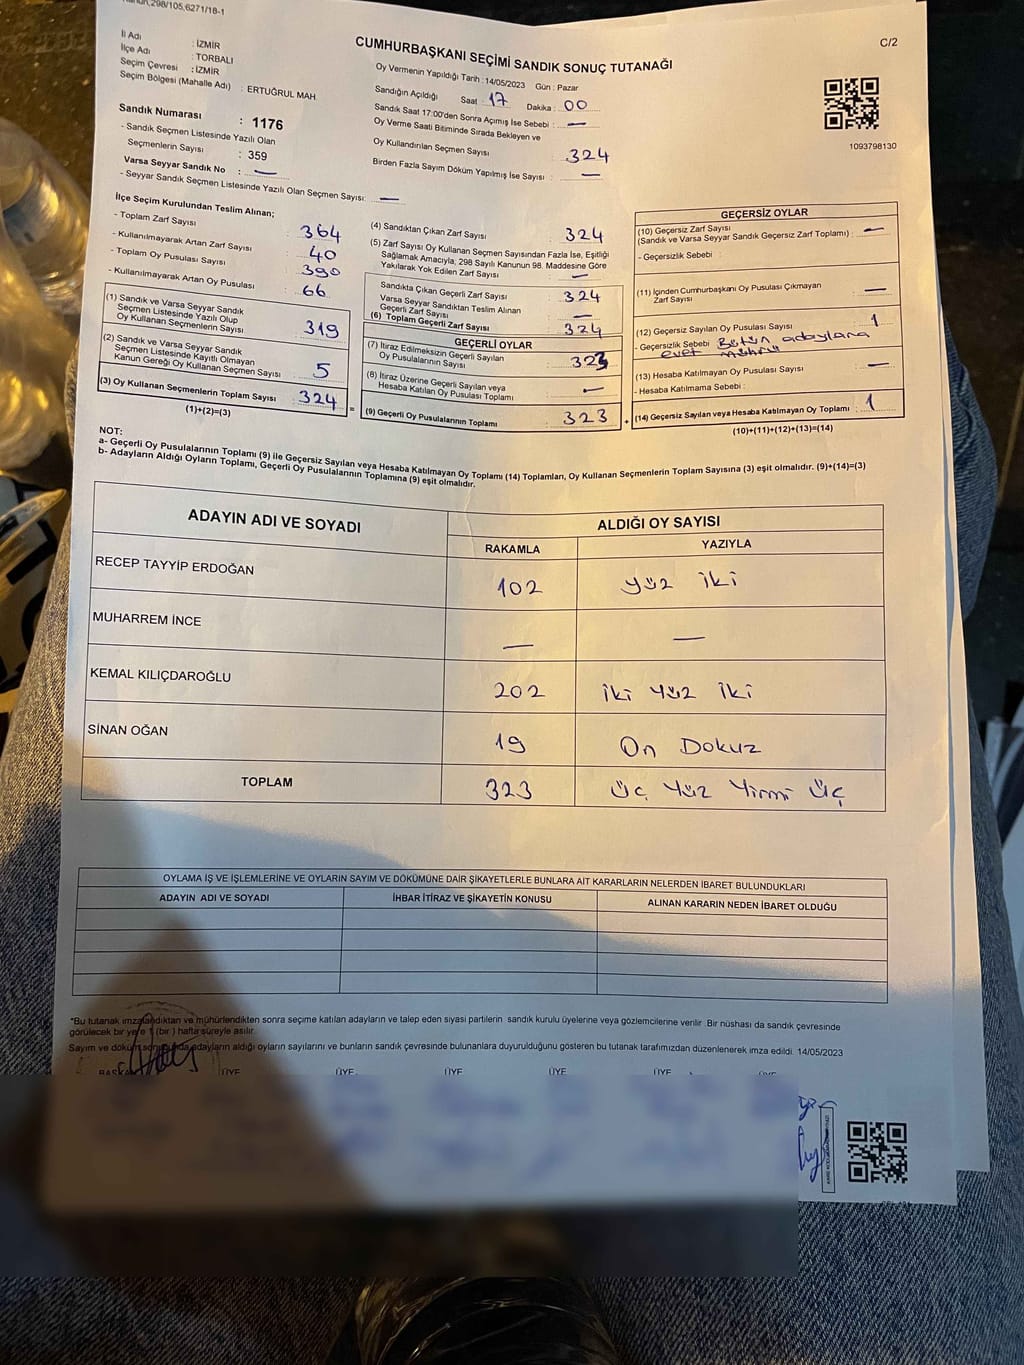 298/105,6271/18-1
C/2
CUMHURBAŞKANI SEÇİMİ SANDIK SONUÇ TUTANAĞI
İl Adı : İZMİR
İlçe Adı : TORBALI
Seçim Çevresi : İZMİR
Seçim Bölgesi (Mahalle Adı) : ERTUĞRUL MAH.
Oy Vermenin Yapıldığı Tarih : 14/05/2023 Gün : Pazar
Sandığın Açıldığı Saat 17 Dakika : 00
Sandık Saat 17:00'den Sonra Açımış İse Sebebi : —
Oy Verme Saati Bitiminde Sırada Bekleyen ve
Oy Kullandırılan Seçmen Sayısı : 324
Birden Fazla Sayım Döküm Yapılmış İse Sayısı : —
1093798130
Sandık Numarası : 1176
- Sandık Seçmen Listesinde Yazılı Olan
Seçmenlerin Sayısı : 359
Varsa Seyyar Sandık No : —
- Seyyar Sandık Seçmen Listesinde Yazılı Olan Seçmen Sayısı: —
İlçe Seçim Kurulundan Teslim Alınan;
- Toplam Zarf Sayısı : 364
- Kullanılmayarak Artan Zarf Sayısı : 40
- Toplam Oy Pusulası Sayısı : 390
- Kullanılmayarak Artan Oy Pusulası : 66
(1) Sandık ve Varsa Seyyar Sandık
Seçmen Listesinde Yazılı Olup
Oy Kullanan Seçmenlerin Sayısı : 319
(2) Sandık ve Varsa Seyyar Sandık
Seçmen Listesinde Kayıtlı Olmayan
Kanun Gereği Oy Kullanan Seçmen Sayısı : 5
(3) Oy Kullanan Seçmenlerin Toplam Sayısı : 324
(1)+(2)=(3)
(4) Sandıktan Çıkan Zarf Sayısı : 324
(5) Zarf Sayısı Oy Kullanan Seçmen Sayısından Fazla İse, Eşitliği
Sağlamak Amacıyla, 298 Sayılı Kanunun 98. Maddesine Göre
Yakılarak Yok Edilen Zarf Sayısı : —
Sandıkta Çıkan Geçerli Zarf Sayısı : 324
Varsa Seyyar Sandıktan Teslim Alınan
Geçerli Zarf Sayısı : —
(6) Toplam Geçerli Zarf Sayısı : 324
GEÇERLİ OYLAR
(7) İtiraz Edilmeksizin Geçerli Sayılan
Oy Pusulalarının Sayısı : 323
(8) İtiraz Üzerine Geçerli Sayılan veya
Hesaba Katılan Oy Pusulası Toplamı : —
(9) Geçerli Oy Pusulalarının Toplamı : 323
GEÇERSİZ OYLAR
(10) Geçersiz Zarf Sayısı
(Sandık ve Varsa Seyyar Sandık Geçersiz Zarf Toplamı) : —
- Geçersizlik Sebebi :
(11) İçinden Cumhurbaşkanı Oy Pusulası Çıkmayan
Zarf Sayısı : —
(12) Geçersiz Sayılan Oy Pusulası Sayısı : 1
- Geçersizlik Sebebi : Bütün adaylara
evet mührü
(13) Hesaba Katılmayan Oy Pusulası Sayısı : —
- Hesaba Katılmama Sebebi :
(14) Geçersiz Sayılan veya Hesaba Katılmayan Oy Toplamı : 1
(10)+(11)+(12)+(13)=(14)
NOT:
a- Geçerli Oy Pusulalarının Toplamı (9) ile Geçersiz Sayılan veya Hesaba Katılmayan Oy Toplamı (14) Toplamları, Oy Kullanan Seçmenlerin Toplam Sayısına (3) eşit olmalıdır. (9)+(14)=(3)
b- Adayların Aldığı Oyların Toplamı, Geçerli Oy Pusulalarının Toplamına (9) eşit olmalıdır.
ADAYIN ADI VE SOYADI ALDIĞI OY SAYISI
RAKAMLA YAZIYLA
RECEP TAYYİP ERDOĞAN 102 yüz iki
MUHARREM İNCE — —
KEMAL KILIÇDAROĞLU 202 iki yüz iki
SİNAN OĞAN 19 On Dokuz
TOPLAM 323 Üç Yüz Yirmi Üç
OYLAMA İŞ VE İŞLEMLERİNE VE OYLARIN SAYIM VE DÖKÜMÜNE DAİR ŞİKAYETLERLE BUNLARA AİT KARARLARIN NELERDEN İBARET BULUNDUKLARI
ADAYIN ADI VE SOYADI İHBAR İTİRAZ VE ŞİKAYETİN KONUSU ALINAN KARARIN NEDEN İBARET OLDUĞU
*Bu tutanak imzalandıktan ve mühürlendikten sonra seçime katılan adayların ve talep eden siyasi partilerin sandık kurulu üyelerine veya gözlemcilerine verilir. Bir nüshası da sandık çevresinde
görülecek bir yere 1 (bir) hafta süreyle asılır.
Sayım ve döküm sonucunda adayların aldığı oyların sayılarını ve bunların sandık çevresinde bulunanlara duyurulduğunu gösteren bu tutanak tarafımızdan düzenlenerek imza edildi. 14/05/2023
BAŞKAN ÜYE ÜYE ÜYE ÜYE ÜYE ÜYE